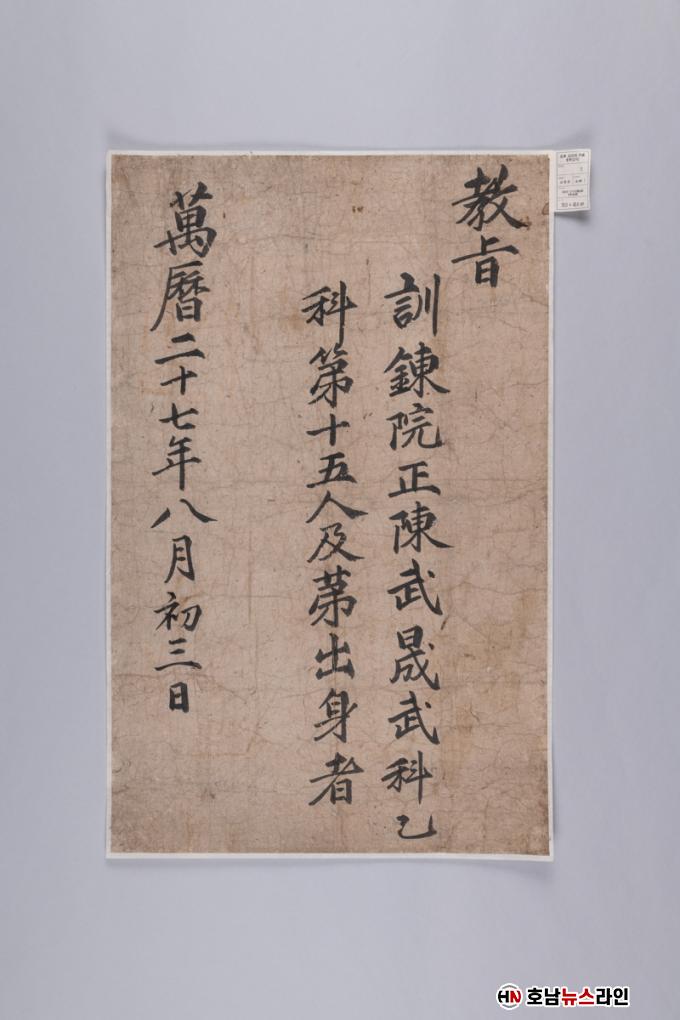 教旨
訓鍊院正陳武晟武科乙
科第十五人及第出身者
萬曆二十七年八月初三日
HN 호남뉴스라인